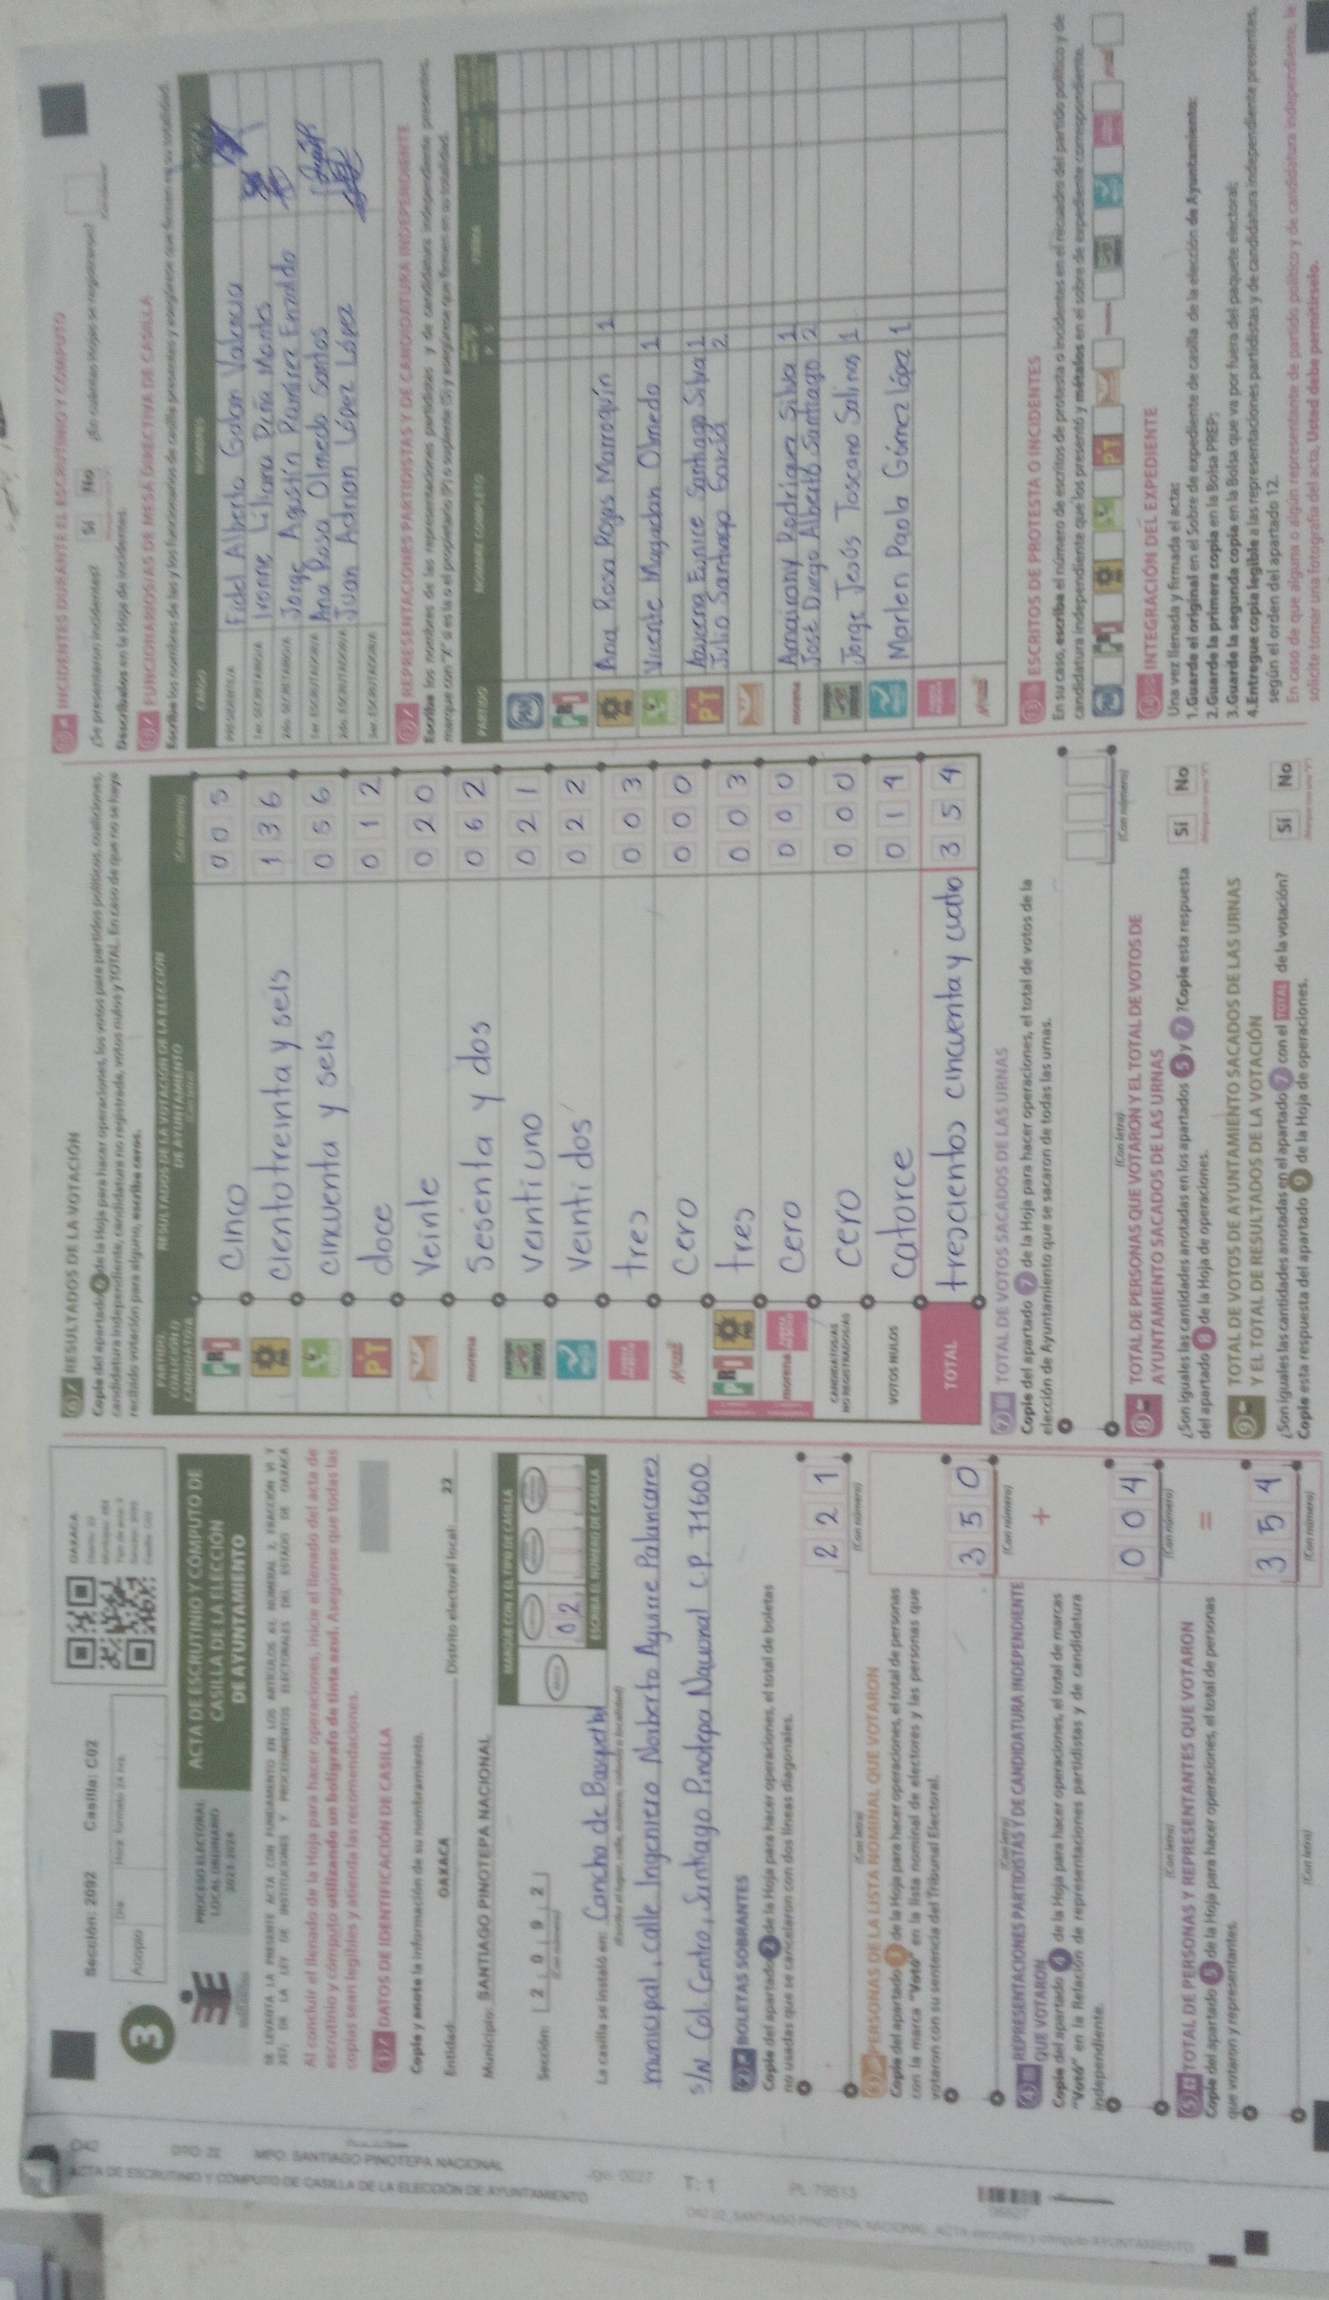 Sección: 2092 Casilla: C02
OAXACA
3
Acopio
PROCESO ELECTORAL
LOCAL ORDINARIO
2023-2024
ACTA DE ESCRUTINIO Y CÓMPUTO DE
CASILLA DE LA ELECCIÓN
DE AYUNTAMIENTO
Al concluir el llenado de la Hoja para hacer operaciones, inicie el llenado del acta de
escrutinio y cómputo utilizando un bolígrafo de tinta azul. Asegúrese que todas las
copias sean legibles y atienda las recomendaciones.
1 DATOS DE IDENTIFICACIÓN DE CASILLA
Copie y anote la información de su nombramiento.
Entidad: OAXACA Distrito electoral local: 22
Municipio: SANTIAGO PINOTEPA NACIONAL
MARQUE CON X EL TIPO DE CASILLA
Sección: 2 0 9 2
(Con número)
0 2
ESCRIBA EL NÚMERO DE CASILLA
La casilla se instaló en: Cancha de Basquetbol
municipal, calle Ingeniero Norberto Aguirre Palancares
S/N Col. Centro, Santiago Pinotepa Nacional C.P. 71600
2 BOLETAS SOBRANTES
Copie del apartado 2 de la Hoja para hacer operaciones, el total de boletas
no usadas que se cancelaron con dos líneas diagonales.
221
(Con letra) (Con número)
3 PERSONAS DE LA LISTA NOMINAL QUE VOTARON
Copie del apartado 3 de la Hoja para hacer operaciones, el total de personas
con la marca "Votó" en la lista nominal de electores y las personas que
votaron con su sentencia del Tribunal Electoral.
350
(Con letra) (Con número)
+
4 REPRESENTACIONES PARTIDISTAS Y DE CANDIDATURA INDEPENDIENTE
QUE VOTARON
Copie del apartado 4 de la Hoja para hacer operaciones, el total de marcas
"Votó" en la Relación de representaciones partidistas y de candidatura
independiente.
004
(Con letra) (Con número)
=
5 TOTAL DE PERSONAS Y REPRESENTANTES QUE VOTARON
Copie del apartado 5 de la Hoja para hacer operaciones, el total de personas
que votaron y representantes.
354
(Con letra) (Con número)
6 RESULTADOS DE LA VOTACIÓN
Copie del apartado 6 de la Hoja para hacer operaciones, los votos para partidos políticos, coaliciones,
candidatura independiente, candidatura no registrada, votos nulos y TOTAL. En caso de que no se haya
recibido votación para alguno, escriba ceros.
PARTIDO, COALICIÓN O CANDIDATURA
RESULTADOS DE LA VOTACIÓN DE LA ELECCIÓN
DE AYUNTAMIENTO
(Con letra) (Con número)
PRI cinco 005
PRD ciento treinta y seis 136
cincuenta y seis 056
PT doce 012
Veinte 020
morena sesenta y dos 062
veintiuno 021
veinti dos 022
tres 003
cero 000
PRI PRD tres 003
morena cero 000
CANDIDATURAS
NO REGISTRADAS cero 000
VOTOS NULOS catorce 014
TOTAL trescientos cincuenta y cuatro 354
7 TOTAL DE VOTOS SACADOS DE LAS URNAS
Copie del apartado 7 de la Hoja para hacer operaciones, el total de votos de la
elección de Ayuntamiento que se sacaron de todas las urnas.
(Con letra) (Con número)
8 TOTAL DE PERSONAS QUE VOTARON Y EL TOTAL DE VOTOS DE
AYUNTAMIENTO SACADOS DE LAS URNAS
¿Son iguales las cantidades anotadas en los apartados 5 y 7? Copie esta respuesta
del apartado 8 de la Hoja de operaciones.
Sí No
9 TOTAL DE VOTOS DE AYUNTAMIENTO SACADOS DE LAS URNAS
Y EL TOTAL DE RESULTADOS DE LA VOTACIÓN
¿Son iguales las cantidades anotadas en el apartado 7 con el TOTAL de la votación?
Copie esta respuesta del apartado 9 de la Hoja de operaciones.
Sí No
INCIDENTES DURANTE EL ESCRUTINIO Y CÓMPUTO
¿Se presentaron incidentes? Sí No ¿En cuántas Hojas se registraron?
Descríbalos en la Hoja de incidentes.
FUNCIONARIOS/AS DE MESA DIRECTIVA DE CASILLA
Escriba los nombres de las y los funcionarios de casilla presentes y asegúrese que firmen en su totalidad.
CARGO NOMBRES
PRESIDENTE/A Fidel Alberto Gabon Valacia
1er. SECRETARIO/A Ivonne Liliana Piña Montes
2do. SECRETARIO/A Jorge Agustín Ramírez
1er. ESCRUTADOR/A Ana Rosa Olmedo Santos
2do. ESCRUTADOR/A Juan Adrian López López
3er. ESCRUTADOR/A
REPRESENTACIONES PARTIDISTAS Y DE CANDIDATURA INDEPENDIENTE
Escriba los nombres de las representaciones partidistas y de candidatura independiente presentes,
marque con "X" si es la o el propietario (P) o suplente (S) y asegúrese que firmen en su totalidad.
PARTIDO NOMBRE COMPLETO FIRMA
PAN
PRI
PRD Ana Rosa Rojas Marroquín 1
Vicente Magadan Olmedo 1
PT Azucena Eunice Santiago Silva 1
Julio Santiago García 2
morena Amairany Rodríguez Silva 1
José Diego Alberto Santiago 2
Jorge Jesús Toscano Salinas 1
Marlen Paola Gómez López 1
ESCRITOS DE PROTESTA O INCIDENTES
En su caso, escriba el número de escritos de protesta o incidentes en el recuadro del partido político y de
candidatura independiente que los presentó y métalos en el sobre de expediente correspondiente.
INTEGRACIÓN DEL EXPEDIENTE
Una vez llenada y firmada el acta:
1.Guarde el original en el Sobre de expediente de casilla de la elección de Ayuntamiento;
2.Guarde la primera copia en la Bolsa PREP;
3.Guarde la segunda copia en la Bolsa que va por fuera del paquete electoral;
4.Entregue copia legible a las representaciones partidistas y de candidatura independiente presentes,
según el orden del apartado 12.
En caso de que alguna o algún representante de partido político y de candidatura independiente, le
solicite tomar una fotografía del acta, Usted debe permitírselo.
DTO: 22 MPO: SANTIAGO PINOTEPA NACIONAL
ACTA DE ESCRUTINIO Y CÓMPUTO DE CASILLA DE LA ELECCIÓN DE AYUNTAMIENTO
T: 1